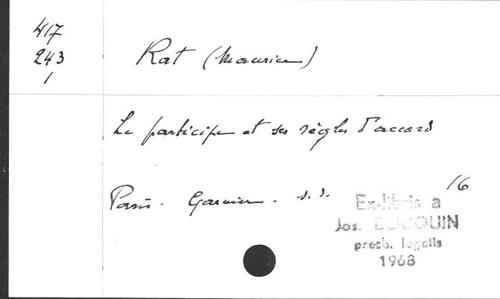 417
243
1
Rat (Maurice)
Le participe et ses règles d'accord
Paris. Garnier. s. d.
16
Ex-libris a
Jos.
presb. legatis
1968